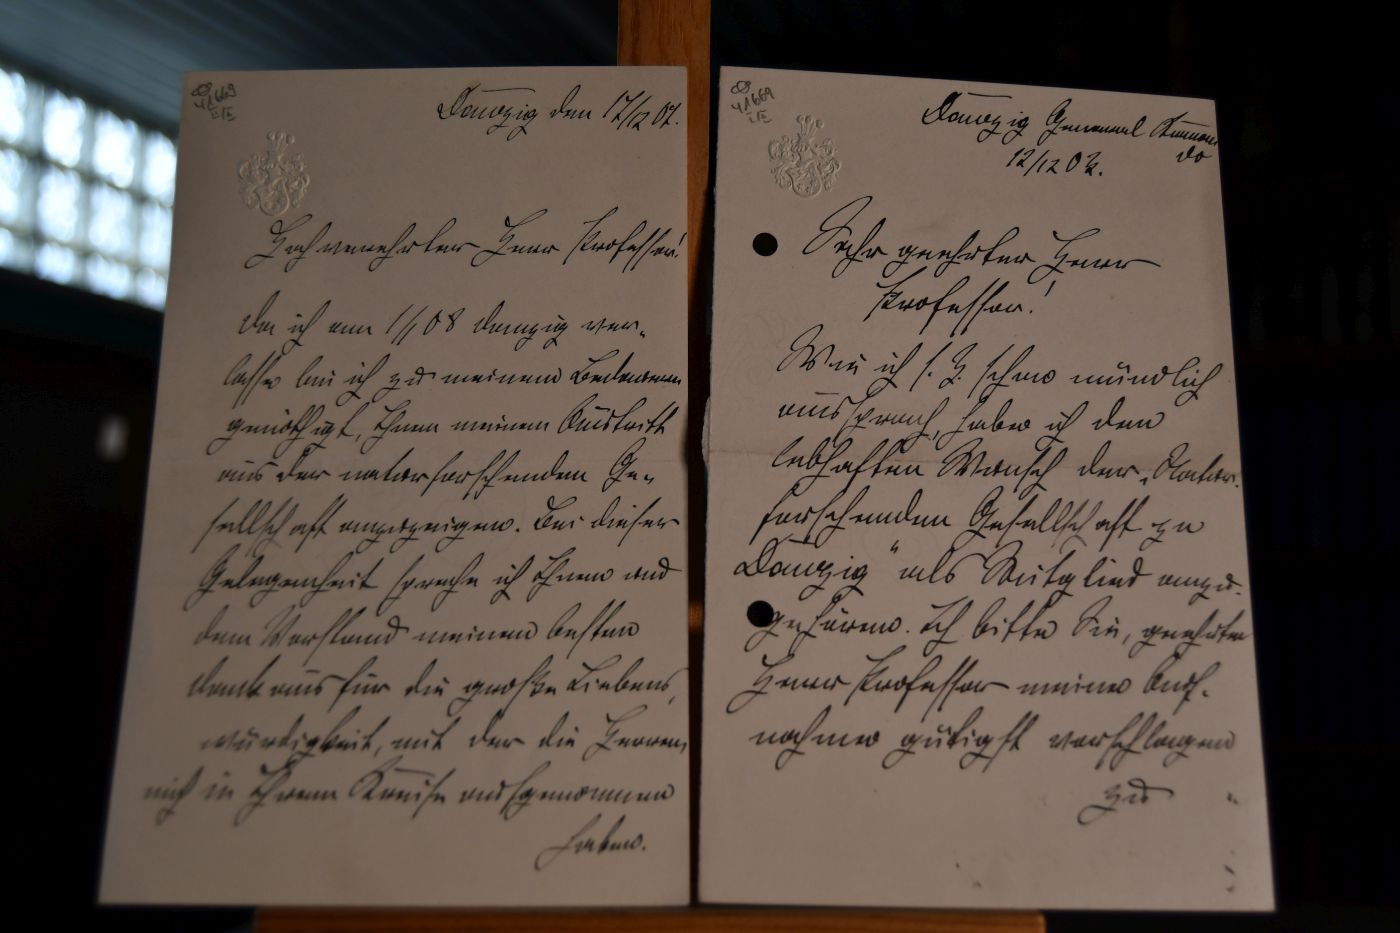 41669
Danzig den 17/12 07.
Hochverehrter Herr Professor!
Da ich am 1/1 08 Danzig ver-
lasse bin ich zu meinem Bedauern
genöthigt, Ihnen meinen Austritt
aus der naturforschenden Ge-
sellschaft anzuzeigen. Bei dieser
Gelegenheit spreche ich Ihnen und
dem Vorstand meinen besten
Dank aus für die große Liebens-
würdigkeit, mit der die Herren
mich in Ihrem Kreise aufgenommen
haben.
41669
Danzig General Komman
do
12/12 02.
Sehr geehrter Herr
Professor!
Wie ich s. Z. schon mündlich
aussprach, habe ich den
lebhaften Wunsch der „Natur-
forschenden Gesellschaft zu
Danzig" als Mitglied anzu-
gehören. Ich bitte Sie, geehrter
Herr Professor meine Auf-
nahme gütigst vorschlagen
zu